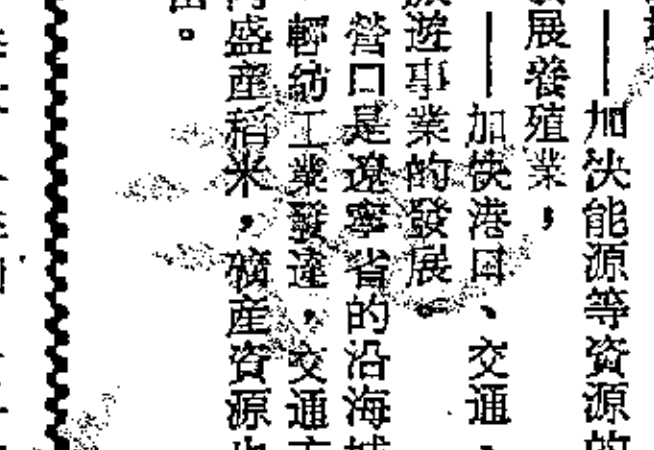 ——加快能源等資源的
發展養殖業，
——加快港口、交通、
旅遊事業的發展。
營口是遼寧省的沿海城
，輕紡工業發達，交通方
盛產稻米，礦產資源也
。